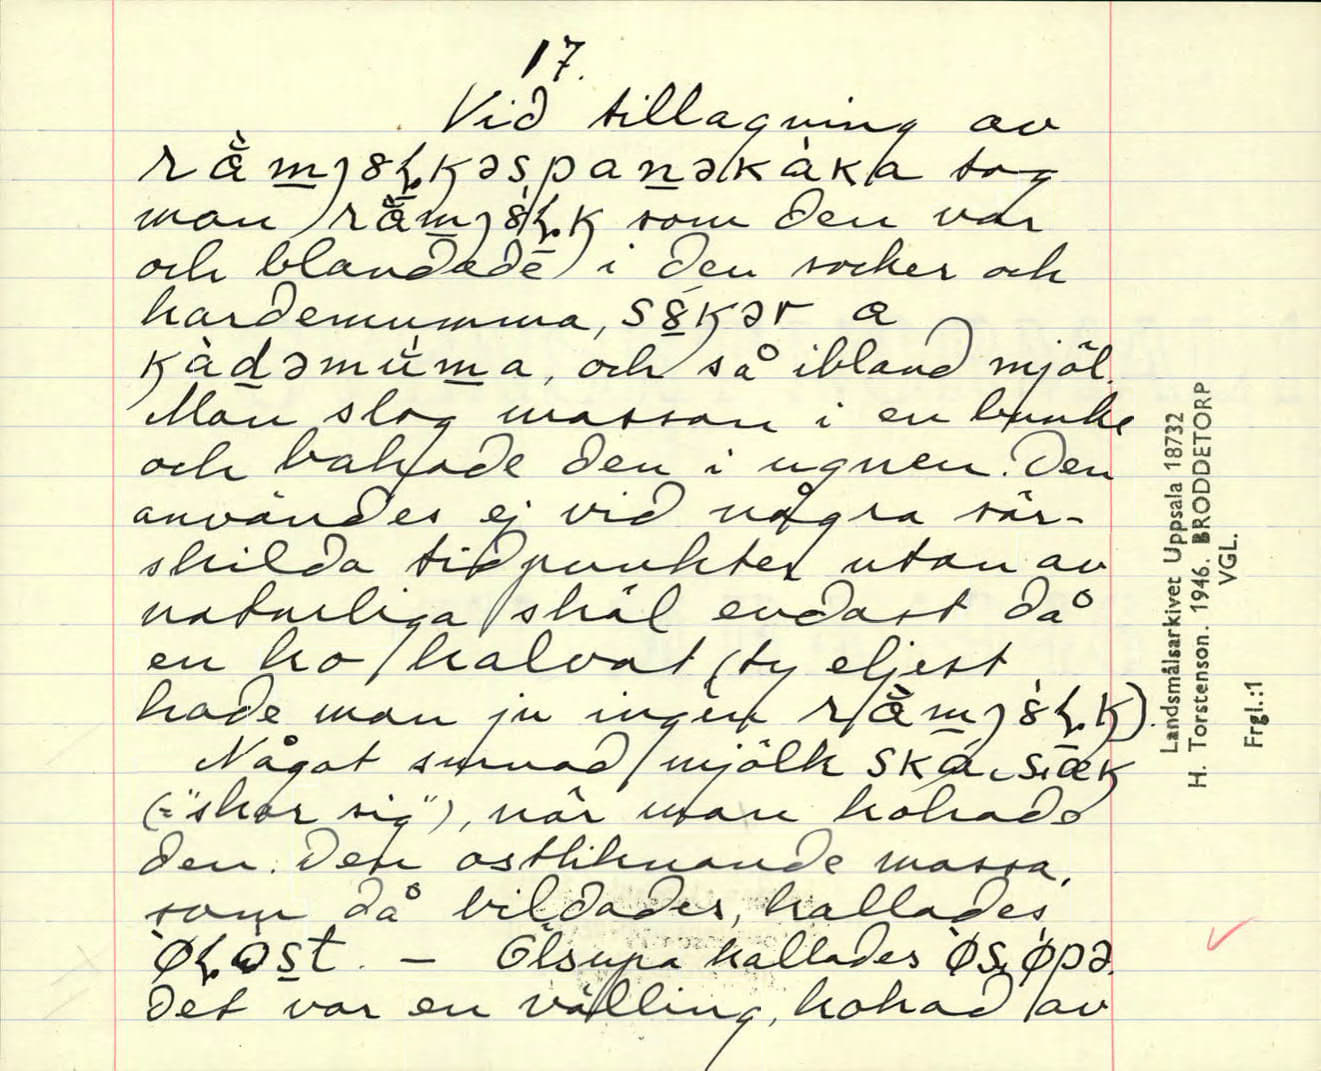 17.
Vid tillagning av
tog
man som den var
och blandade i den socker och
kardemumma, a
och så ibland mjöl.
Man slog massan i en bunke
och bakade den i ugnen. Den
användes ej vid några sär-
skilda tidpunkter utan av
naturliga skäl endast då
en ko kalvat (ty eljest
hade man ju ingen
Något surnad mjölk
(="skar sig"), när man kokade
den. Den ostliknande massa,
som då bildades, kallades
— Ölsupa kallades
Det var en välling, kokad av
Landsmålsarkivet Uppsala 18732
H. Torstenson. 1946. BRODDETORP
VGL.
Frgl.:1